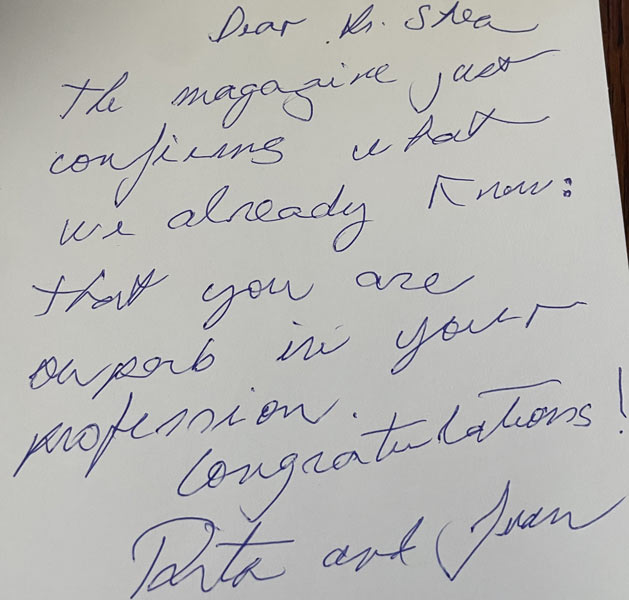 Dear Dr. Shea
The magazine just
confirms what
we already know:
that you are
superb in your
profession.
Congratulations!
and Juan